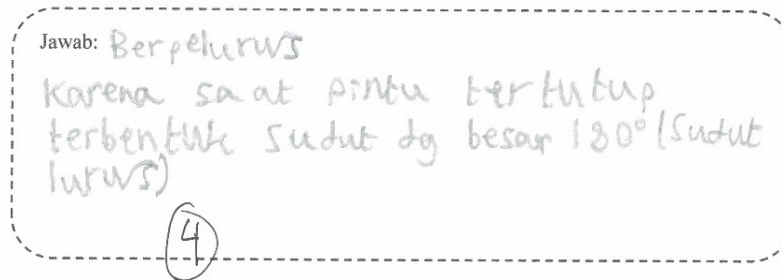 Jawab: Berpelurus
Karena saat pintu tertutup
terbentuk sudut dg besar 180° (Sudut
lurus)
4